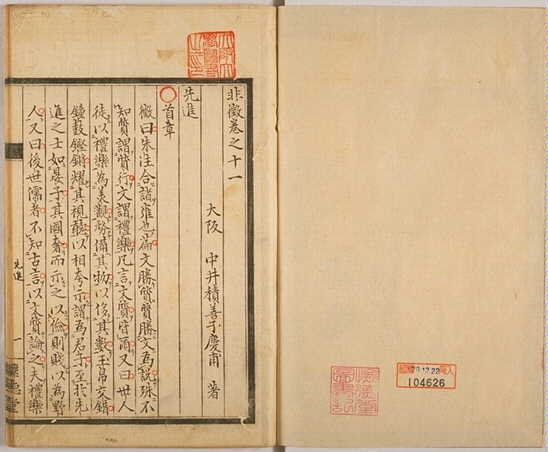 非徵卷之十一
大阪 中井積善子慶甫 著
先進
首章
徵曰朱注合諸雍也篇文勝質質勝文為說殊不
知質謂質行文謂禮樂凡言文質皆爾又曰世人
徒以禮樂為美觀務備其物以侈其事玉帛交錯
鐘鼓鏗鏘耀其視聽以相夸示謂為君子至於先
進之士如晏子其國奢而示之以儉則賤以為野
人又曰後世儒者不知古言以文質論之夫禮樂
先進
一
104626